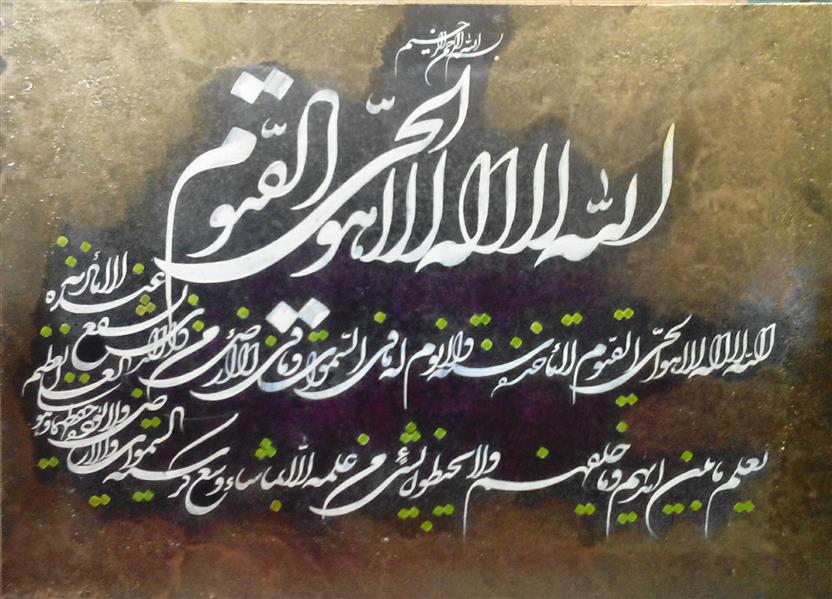 بسم الله الرحمن الرحیم
الله لا اله الا هو الحی القیوم
الله لا اله الا هو الحی القیوم لا تأخذه سنة ولا نوم له ما فی السموات وما فی الارض من ذا الذی یشفع عنده الا بإذنه
یعلم ما بین ایدیهم وما خلفهم ولا یحیطون بشیء من علمه الا بما شاء وسع کرسیه السموات والارض ولا یؤده حفظهما وهو العلی العظیم